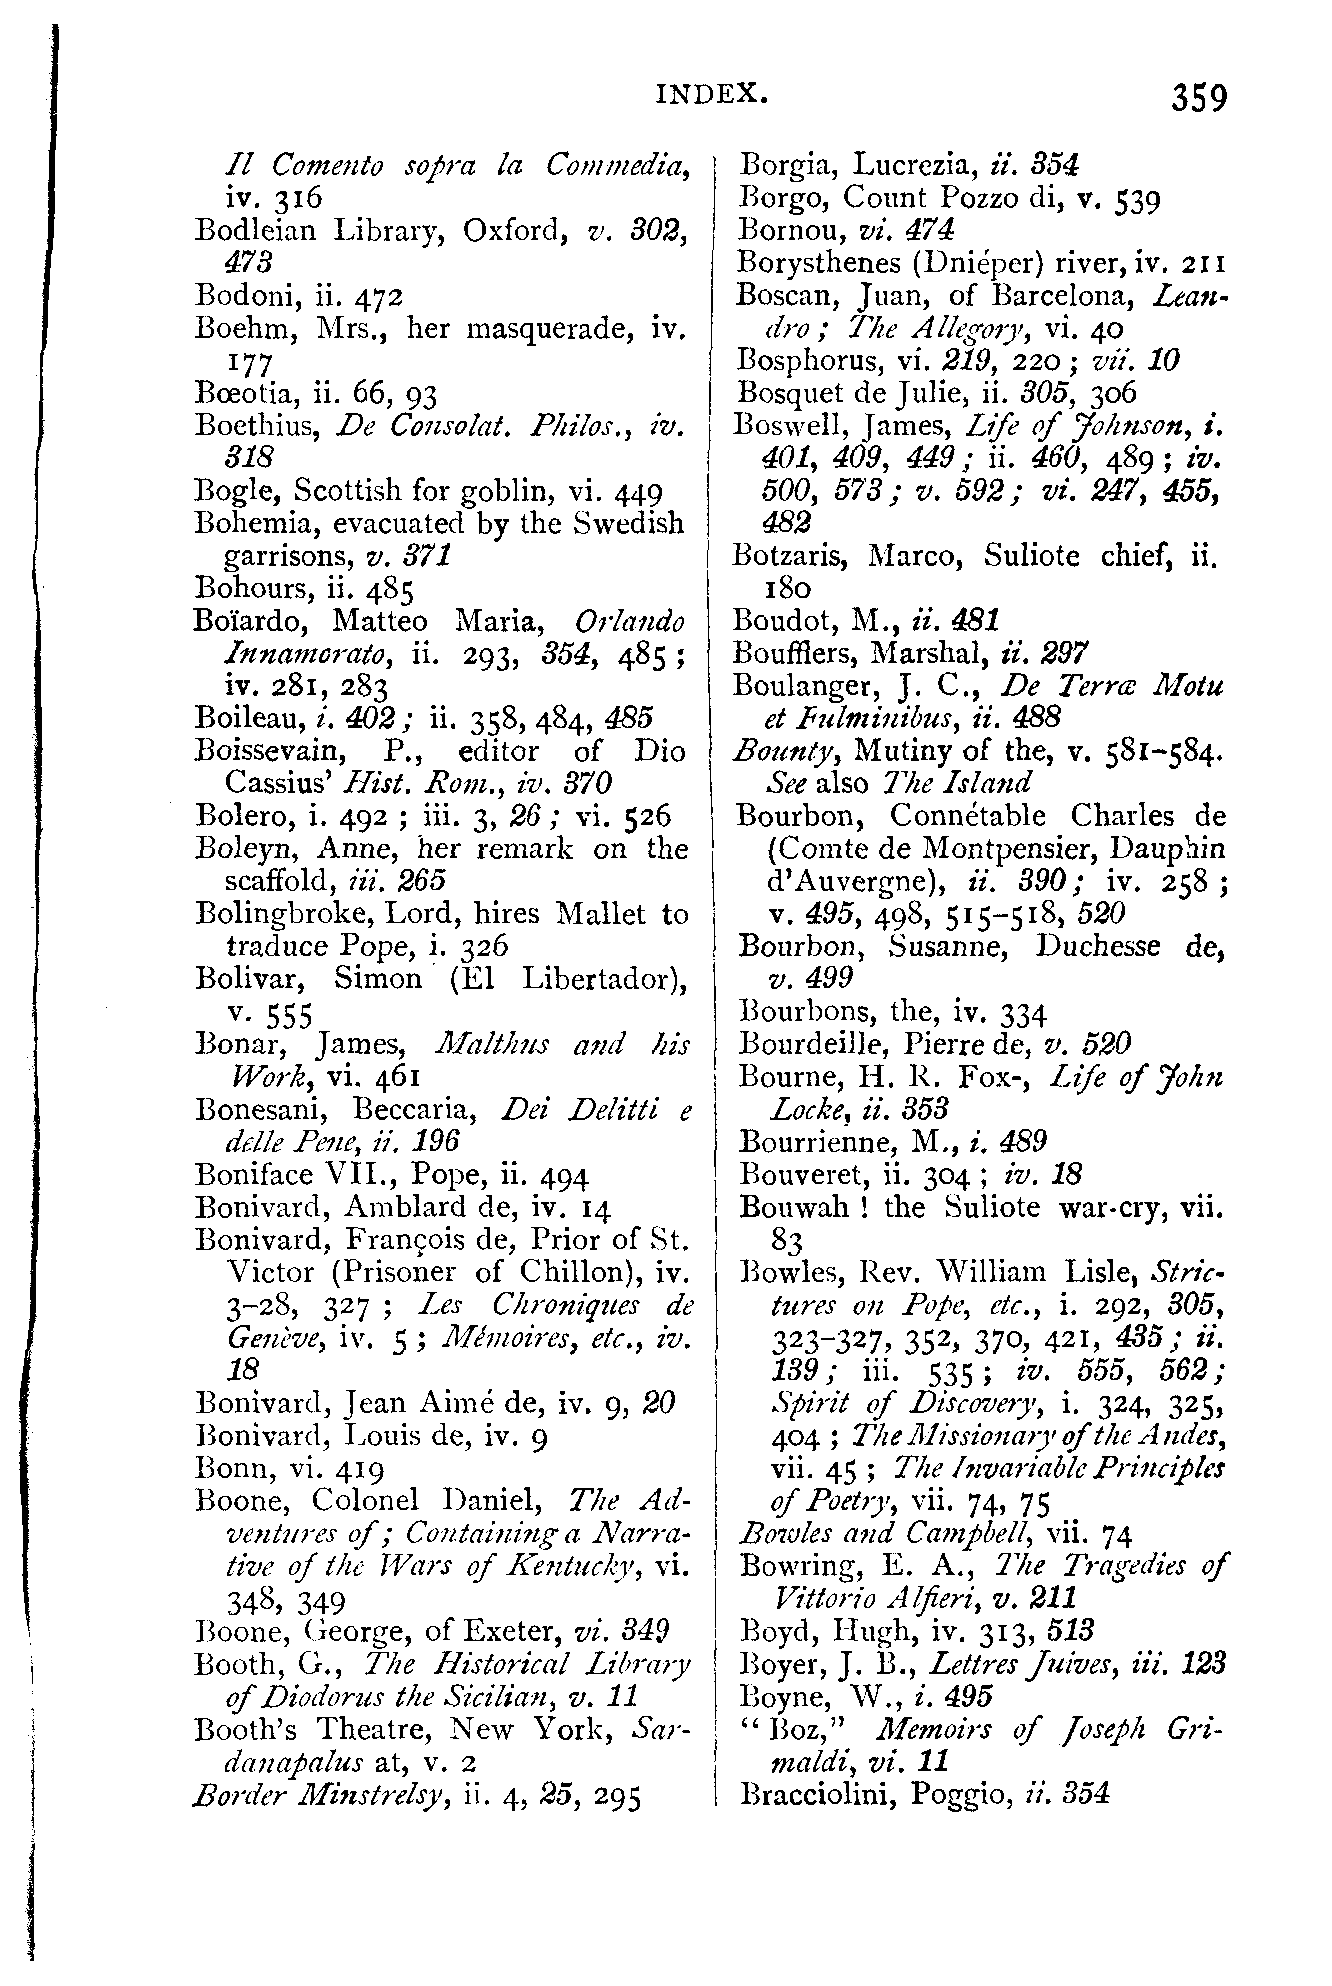 INDEX.
359
Il Comento sopra la Commedia,
iv. 316
Bodleian Library, Oxford, v. 302,
473
Bodoni, ii. 472
Boehm, Mrs., her masquerade, iv.
177
Bœotia, ii. 66, 93
Boethius, De Consolat. Philos., iv.
318
Bogle, Scottish for goblin, vi. 449
Bohemia, evacuated by the Swedish
garrisons, v. 371
Bohours, ii. 485
Boïardo, Matteo Maria, Orlando
Innamorato, ii. 293, 354, 485 ;
iv. 281, 283
Boileau, i. 402 ; ii. 358, 484, 485
Boissevain, P., editor of Dio
Cassius' Hist. Rom., iv. 370
Bolero, i. 492 ; iii. 3, 26 ; vi. 526
Boleyn, Anne, her remark on the
scaffold, iii. 265
Bolingbroke, Lord, hires Mallet to
traduce Pope, i. 326
Bolivar, Simon (El Libertador),
v. 555
Bonar, James, Malthus and his
Work, vi. 461
Bonesani, Beccaria, Dei Delitti e
delle Pene, ii. 196
Boniface VII., Pope, ii. 494
Bonivard, Amblard de, iv. 14
Bonivard, François de, Prior of St.
Victor (Prisoner of Chillon), iv.
3-28, 327 ; Les Chroniques de
Genève, iv. 5 ; Mémoires, etc., iv.
18
Bonivard, Jean Aimé de, iv. 9, 20
Bonivard, Louis de, iv. 9
Bonn, vi. 419
Boone, Colonel Daniel, The Ad-
ventures of ; Containing a Narra-
tive of the Wars of Kentucky, vi.
348, 349
Boone, George, of Exeter, vi. 349
Booth, G., The Historical Library
of Diodorus the Sicilian, v. 11
Booth's Theatre, New York, Sar-
danapalus at, v. 2
Border Minstrelsy, ii. 4, 25, 295
Borgia, Lucrezia, ii. 354
Borgo, Count Pozzo di, v. 539
Bornou, vi. 474
Borysthenes (Dniéper) river, iv. 211
Boscan, Juan, of Barcelona, Lean-
dro ; The Allegory, vi. 40
Bosphorus, vi. 219, 220 ; vii. 10
Bosquet de Julie, ii. 305, 306
Boswell, James, Life of Johnson, i.
401, 409, 449 ; ii. 460, 489 ; iv.
500, 573 ; v. 592 ; vi. 247, 455,
482
Botzaris, Marco, Suliote chief, ii.
180
Boudot, M., ii. 481
Boufflers, Marshal, ii. 297
Boulanger, J. C., De Terræ Motu
et Fulminibus, ii. 488
Bounty, Mutiny of the, v. 581-584.
See also The Island
Bourbon, Connétable Charles de
(Comte de Montpensier, Dauphin
d'Auvergne), ii. 390 ; iv. 258 ;
v. 495, 498, 515-518, 520
Bourbon, Susanne, Duchesse de,
v. 499
Bourbons, the, iv. 334
Bourdeille, Pierre de, v. 520
Bourne, H. R. Fox-, Life of John
Locke, ii. 353
Bourrienne, M., i. 489
Bouveret, ii. 304 ; iv. 18
Bouwah ! the Suliote war-cry, vii.
83
Bowles, Rev. William Lisle, Stric-
tures on Pope, etc., i. 292, 305,
323-327, 352, 370, 421, 435 ; ii.
139 ; iii. 535 ; iv. 555, 562 ;
Spirit of Discovery, i. 324, 325,
404 ; The Missionary of the Andes,
vii. 45 ; The Invariable Principles
of Poetry, vii. 74, 75
Bowles and Campbell, vii. 74
Bowring, E. A., The Tragedies of
Vittorio Alfieri, v. 211
Boyd, Hugh, iv. 313, 513
Boyer, J. B., Lettres Juives, iii. 123
Boyne, W., i. 495
" Boz," Memoirs of Joseph Gri-
maldi, vi. 11
Bracciolini, Poggio, ii. 354